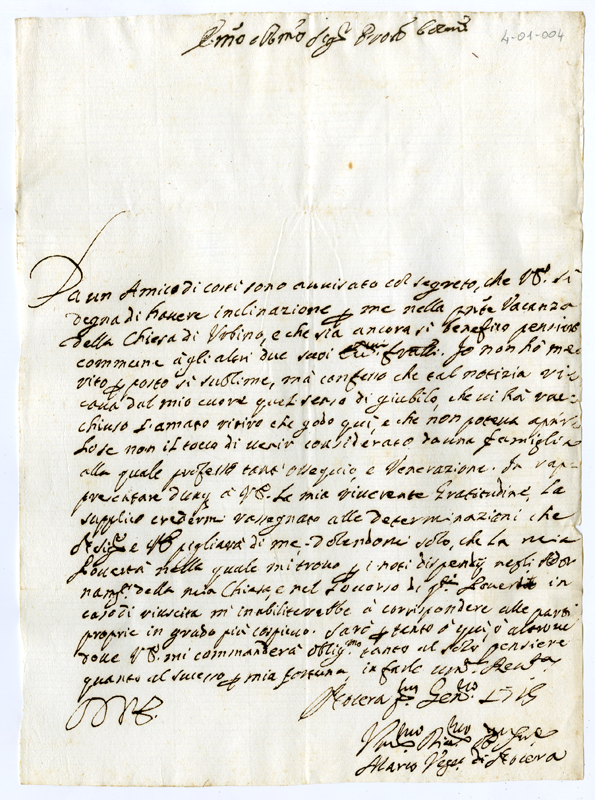 4-01-004
Da un Amico di costì sono avvisato col segreto, che V.S. si
degna di havere inclinazione p me nella pnte Vacanza
della Chiesa di Urbino, e che sia ancora sì benefico
commune à gli altri due suoi Io non hò me
rito p posto sì sublime, mà confesso che tal notizia
dal mio cuore quel senso di giubilo, che vi hà rac
chiuso l'amato ritiro che godo qui, e che non poteva aprir
lo se non il tocco di venir considerato da una famiglia
alla quale professo tant'ossequio e Venerazione. In rap
presentare à V.S. la mia riverente Gratitudine, la
supplico credermi rassegnato alle determinazioni che
e V.S. pigliarà di me, dolendomi solo, che la mia
Povertà nella quale mi trovo p i noti dispendij negli Ador
nam.ti della mia Chiesa, e nel soccorso di Povertà in
caso di riuscita m'inabiliterebbe à corrispondere alle parti
proprie in grado più cospicuo. Sarò p tanto ò qui, ò altrove
dove V.S. mi commanderà oblig.mo tanto al solo pensiere
quanto al sucesso p mia fortuna, in farle
D V.S. Nocera Gen.ro
Marco Vesc. di Nocera